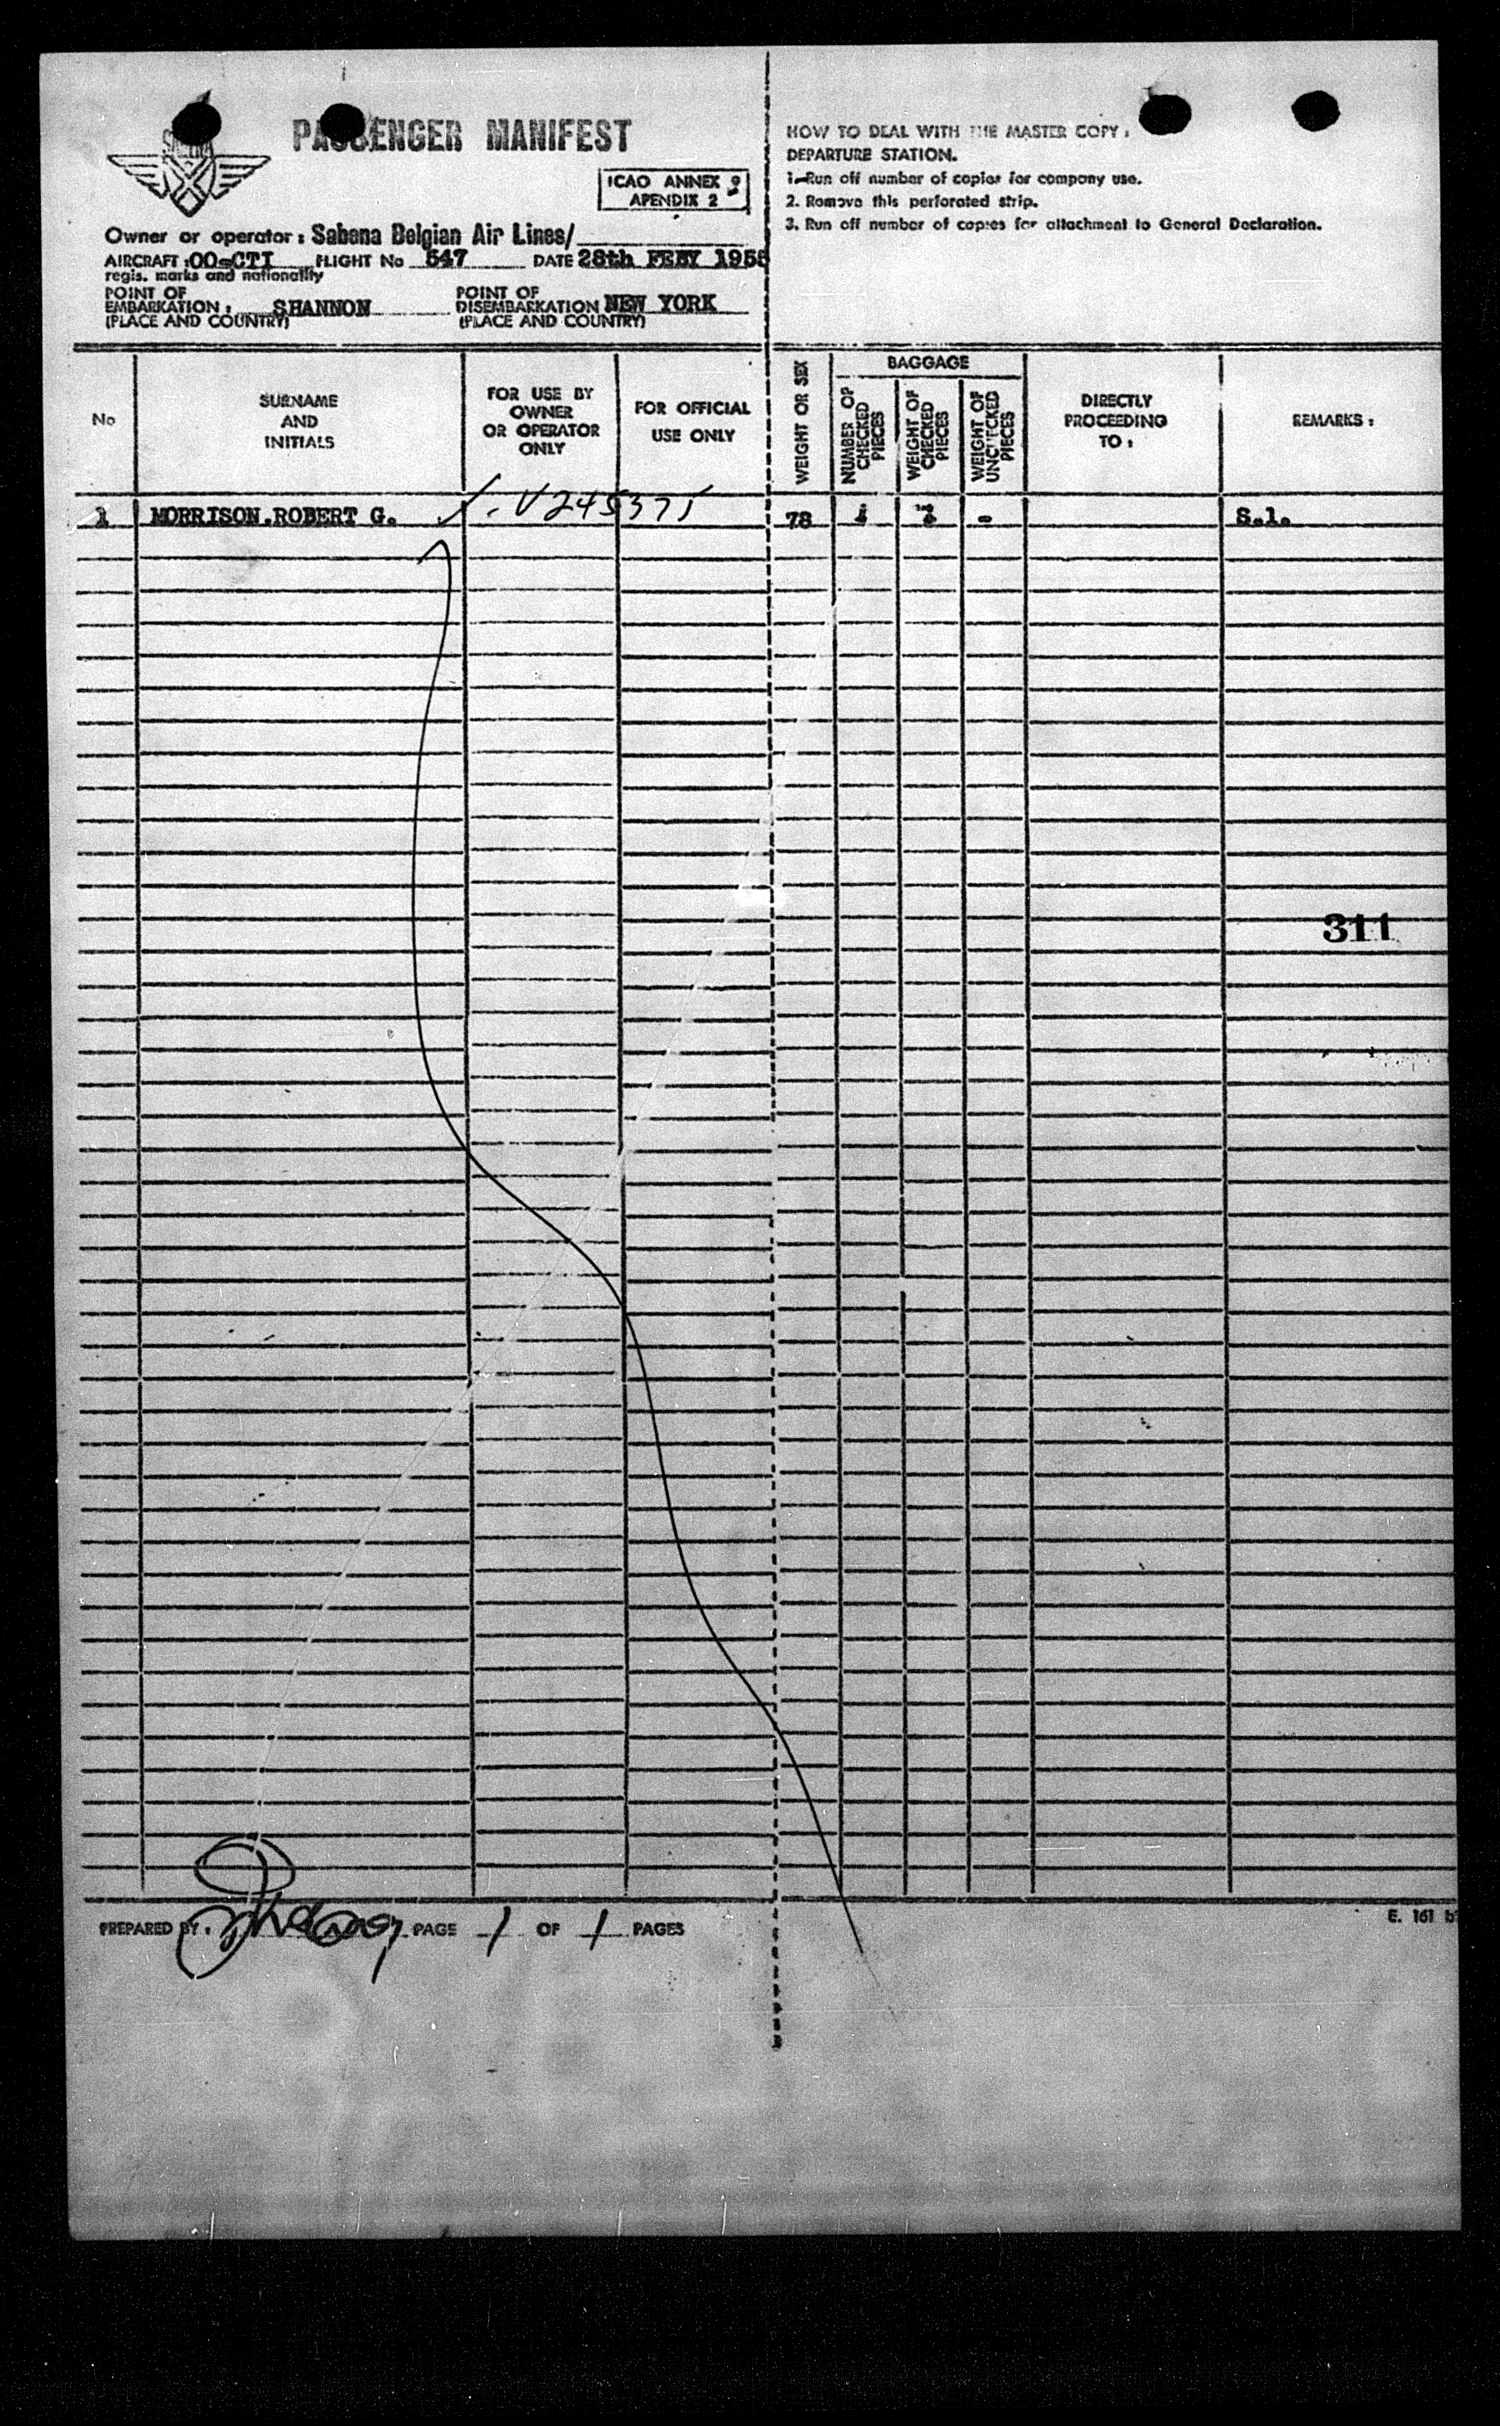 PASSENGER MANIFEST
ICAO ANNEX 9
APENDIX 2
Owner or operator: Sabena Belgian Air Lines/
AIRCRAFT: OO-CTI FLIGHT No 547 DATE 28th FEBY 1955
regis. marks and nationality
POINT OF
EMBARKATION: SHANNON
(PLACE AND COUNTRY)
POINT OF
DISEMBARKATION NEW YORK
(PLACE AND COUNTRY)
HOW TO DEAL WITH THE MASTER COPY:
DEPARTURE STATION.
1. Run off number of copies for company use.
2. Remove this perforated strip.
3. Run off number of copies for attachment to General Declaration.
No
SURNAME
AND
INITIALS
FOR USE BY
OWNER
OR OPERATOR
ONLY
FOR OFFICIAL
USE ONLY
WEIGHT OR SEX
BAGGAGE
NUMBER OF
CHECKED
PIECES
WEIGHT OF
CHECKED
PIECES
WEIGHT OF
UNCHECKED
PIECES
DIRECTLY
PROCEEDING
TO:
REMARKS:
1 MORRISON.ROBERT G. V245375 78 - S.1.
311
PREPARED BY: PAGE 1 OF 1 PAGES
E. 161 b